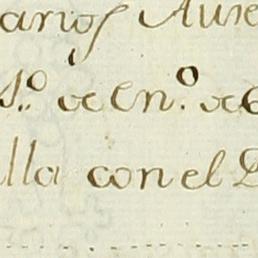 arios Aure
1.º de En.º de 6
lla con el D